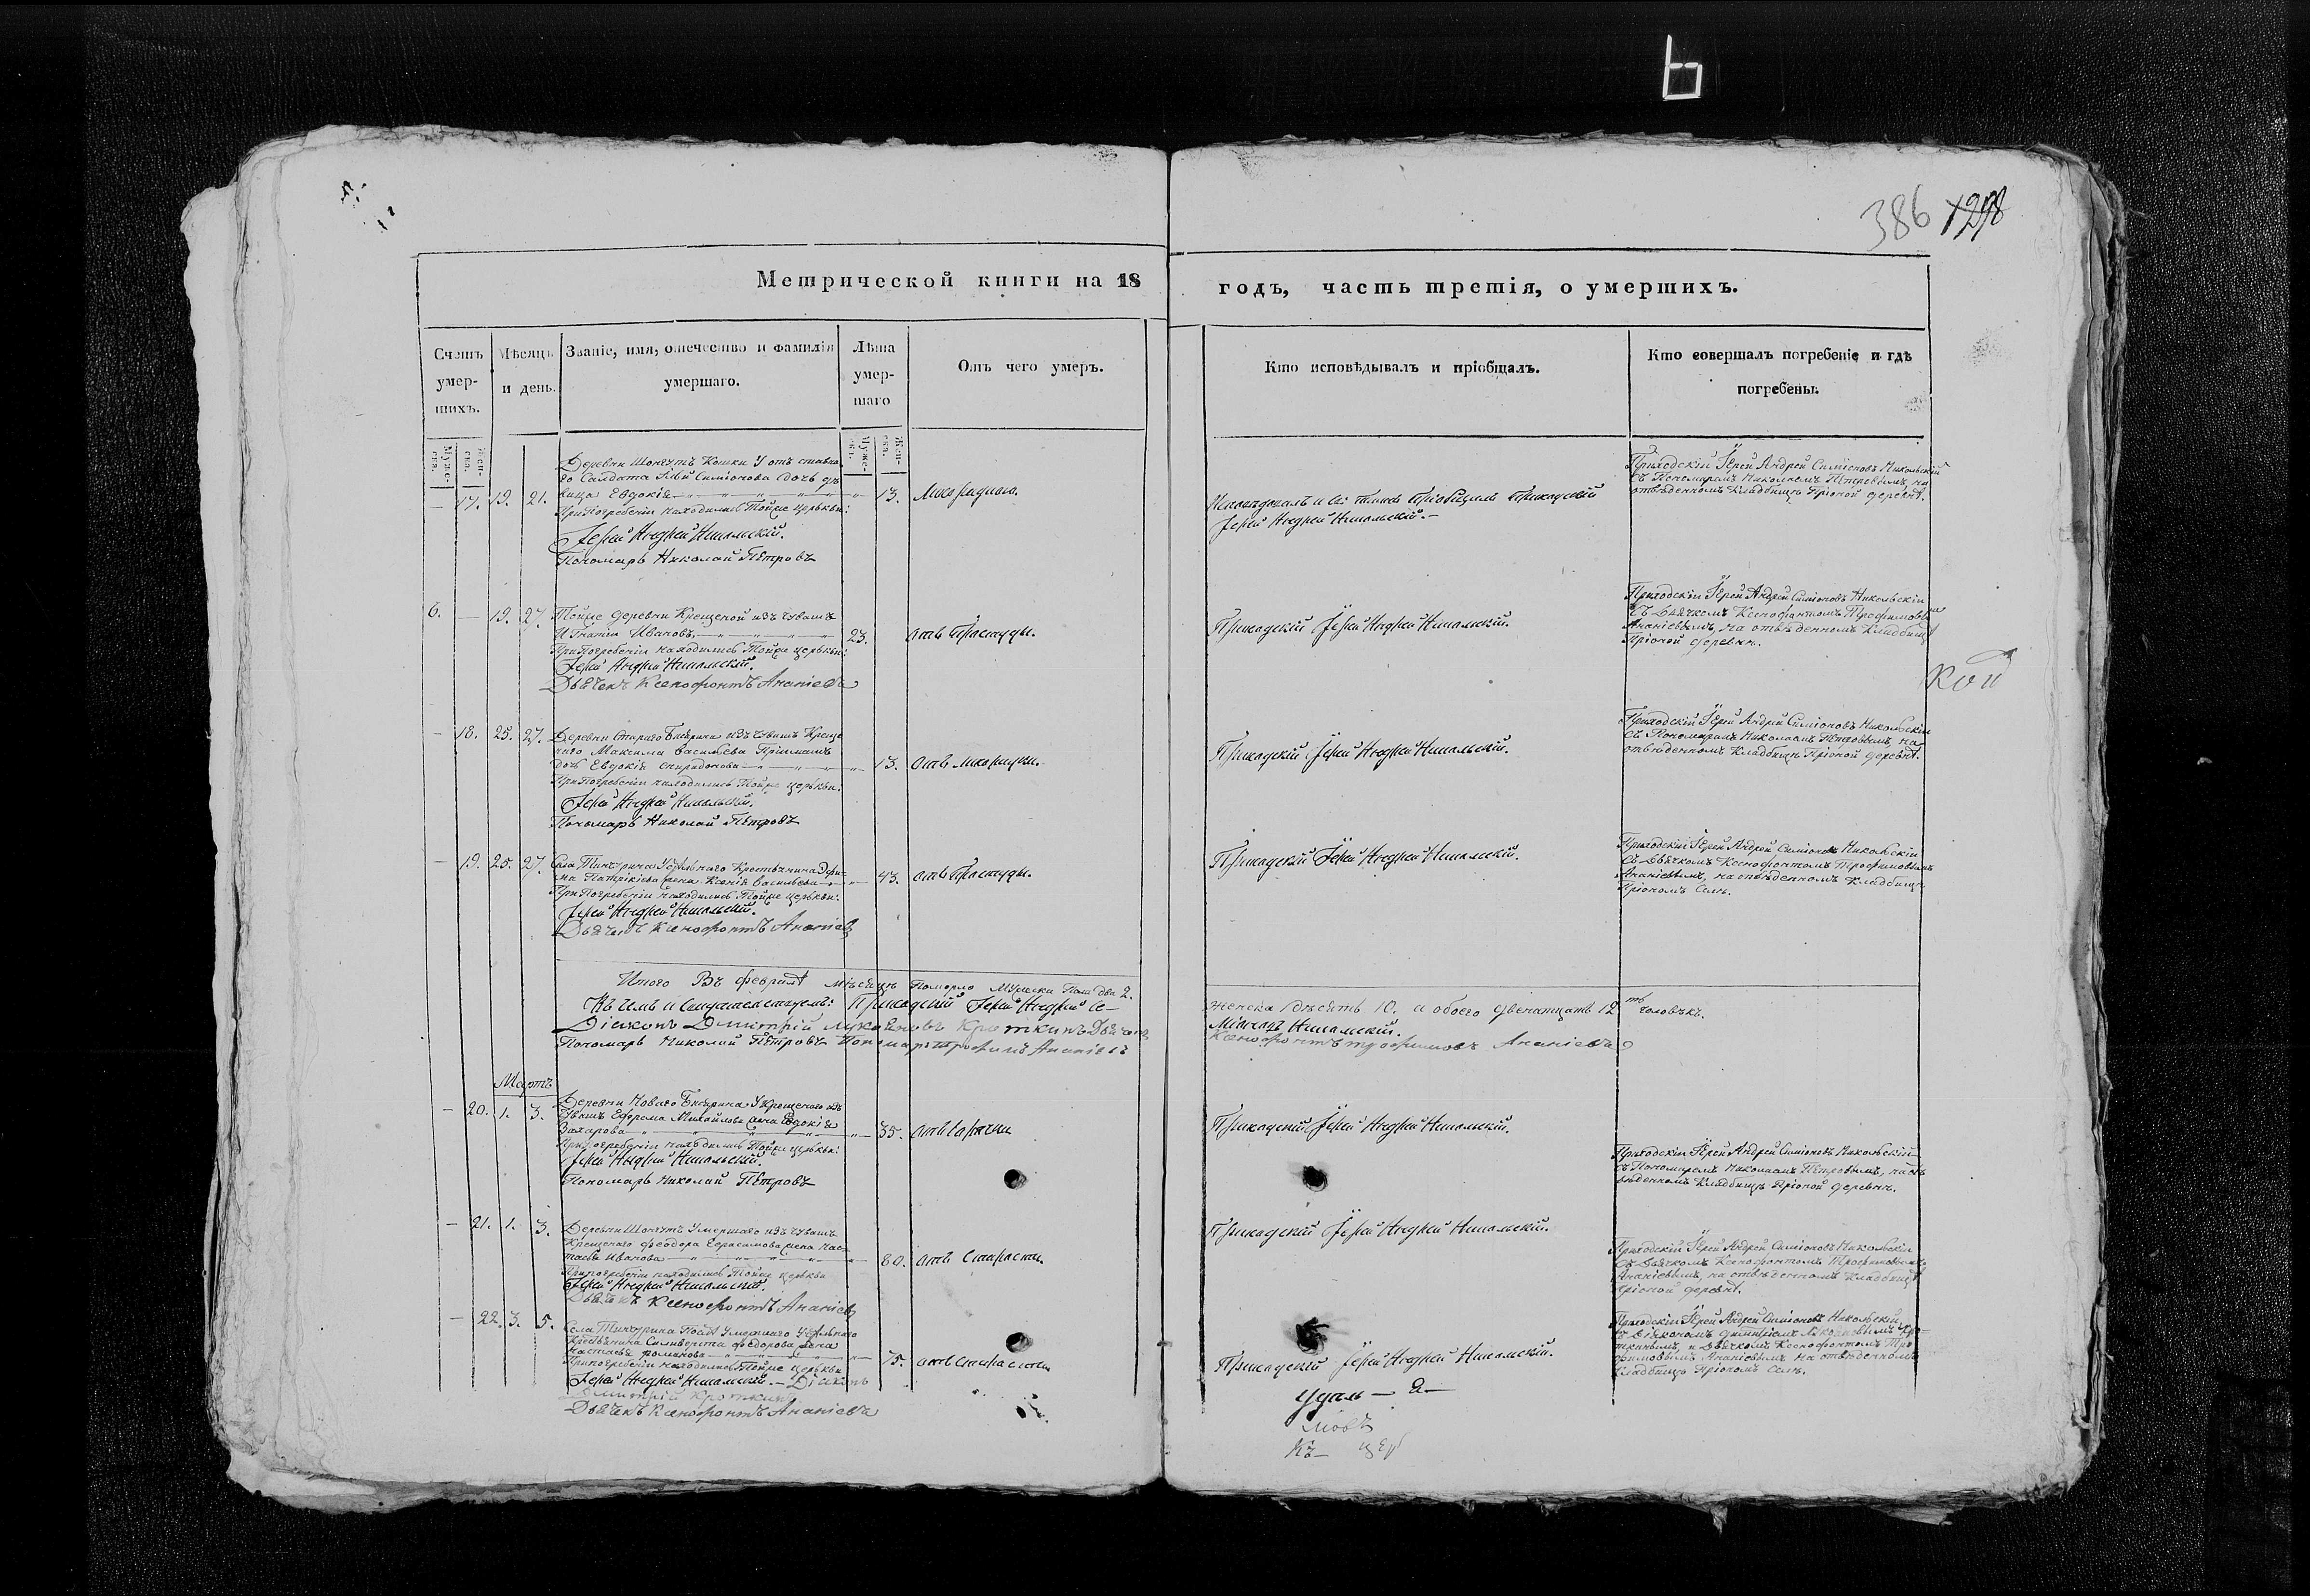 6
386 1298
Метрической книги на 18 годъ, часть третія, о умершихъ.
Счетъ умер-шихъ.
Мѣсяцъ и день.
Званіе, имя, отечество и фамилія умершаго.
Лѣта умер-шаго
Отъ чего умеръ.
Кто исповѣдывалъ и пріобщалъ.
Кто совершалъ погребеніе и гдѣ погребены.
Муже-ска.
Жен-ска.
Муже-ска.
Жен-ска.
Деревни Кошки У отъ ставна
го Салдата Симіонова дочь дѣ
— 17. 19. 21. вица Евдокія 13.
При Погребеніи находились Тойже церькви:
Іерей Андрей Никольскій.
Пономарь Николай Петровъ
Исповѣдовалъ и св: таинъ Пріобщилъ Приходскій
Іерей Андрей Никольскій.
Приходскій Іерей Андрей Симіоновъ Никольскій
съ Пономаремъ Николаемъ Петровымъ, на
отвѣденномъ Кладбищѣ Пріоной деревнѣ.
6. — 19. 27. Тойже деревни Крещеной изъ чувашъ
Игнатій Ивановъ 23. отъ Простуды.
При Погребеніи находились Тойже церькви:
Іерей Андрей Никольскій.
Дьячекъ Ксенофонтъ Ананіевъ
Приходскій Іерей Андрей Никольскій.
Приходскій Іерей Андрей Симіоновъ Никольскій
съ Дьячкомъ Ксенофонтомъ Трофимовымъ
Ананіевымъ, на отвѣденномъ Кладбищѣ
Пріоной деревни.
Кой
— 18. 25. 27. Деревни Стараго изъ чувашъ Креще
наго Максима Васильева
дочь Евдокія Спиридонова 13. отъ лихорадки.
При Погребеніи находились Тойже церькви:
Іерей Андрей Никольскій.
Пономарь Николай Петровъ
Приходскій Іерей Андрей Никольскій.
Приходскій Іерей Андрей Симіоновъ Никольскій
съ Пономаремъ Николаемъ Петровымъ, на
отвѣденномъ Кладбищѣ Пріоной деревнѣ.
— 19. 25. 27. Села Тинчурина Удѣльнаго Крестьянина
жена Ксенія Васильева 43. отъ Простуды.
При Погребеніи находились Тойже церькви:
Іерей Андрей Никольскій.
Дьячекъ Ксенофонтъ Ананіевъ
Приходскій Іерей Андрей Никольскій.
Приходскій Іерей Андрей Симіоновъ Никольскій
съ Дьячкомъ Ксенофонтомъ Трофимовымъ
Ананіевымъ, на отвѣденномъ Кладбищѣ
Пріономъ Селѣ.
Итого Въ февралѣ мѣсяцѣ Померло Мужска Пола два 2. женска десять 10. и обоего двенатцать 12 человѣкъ.
Въ чемъ и Свидѣтельствуемъ: Приходскій Іерей Андрей Симіоновъ Никольскій.
Діаконъ Димитрій Кроткинъ Дьячекъ Ксенофонтъ Трофимовъ Ананіевъ
Пономарь Николай Петровъ Пономарь Трофимъ Ананіевъ
Мартъ
— 20. 1. 3. Деревни Новаго У Крещенаго изъ
чувашъ Ефрема Михайлова жена Евдокія
Захарова 35. отъ Горячки
При погребеніи находились Тойже церькви:
Іерей Андрей Никольскій.
Пономарь Николай Петровъ
Приходскій Іерей Андрей Никольскій.
Приходскій Іерей Андрей Симіоновъ Никольскій
съ Пономаремъ Николаемъ Петровымъ, на от
вѣденномъ Кладбищѣ Пріоной деревни.
— 21. 1. 3. Деревни Умершаго изъ чувашъ
Крещенаго Феодора Герасимова жена Нас-
тасья Иванова 80. отъ Старости.
При погребеніи находились Тойже церькви
Іерей Андрей Никольскій.
Дьячекъ Ксенофонтъ Ананіевъ
Приходскій Іерей Андрей Никольскій.
Приходскій Іерей Андрей Симіоновъ Никольскій
съ Дьячкомъ Ксенофонтомъ Трофимовымъ
Ананіевымъ, на отвѣденномъ Кладбищѣ
Пріоной деревнѣ.
— 22. 3. 5. Села Тинчурина Умершаго Удѣльнаго
Крестьянина Сильверста Федорова жена
Настасья 75. отъ Старости
При погребеніи находились Тойже церькви
Іерей Андрей Никольскій. — Діаконъ
Димитрій Кроткинъ
Дьячекъ Ксенофонтъ Ананіевъ
Приходскій Іерей Андрей Никольскій.
Приходскій Іерей Андрей Симіоновъ Никольскій
съ Діакономъ Димитріемъ Кро-
ткинымъ, и Дьячкомъ Ксенофонтомъ Тро
фимовымъ Ананіевымъ на отвѣденномъ
Кладбищѣ Пріономъ Селѣ.